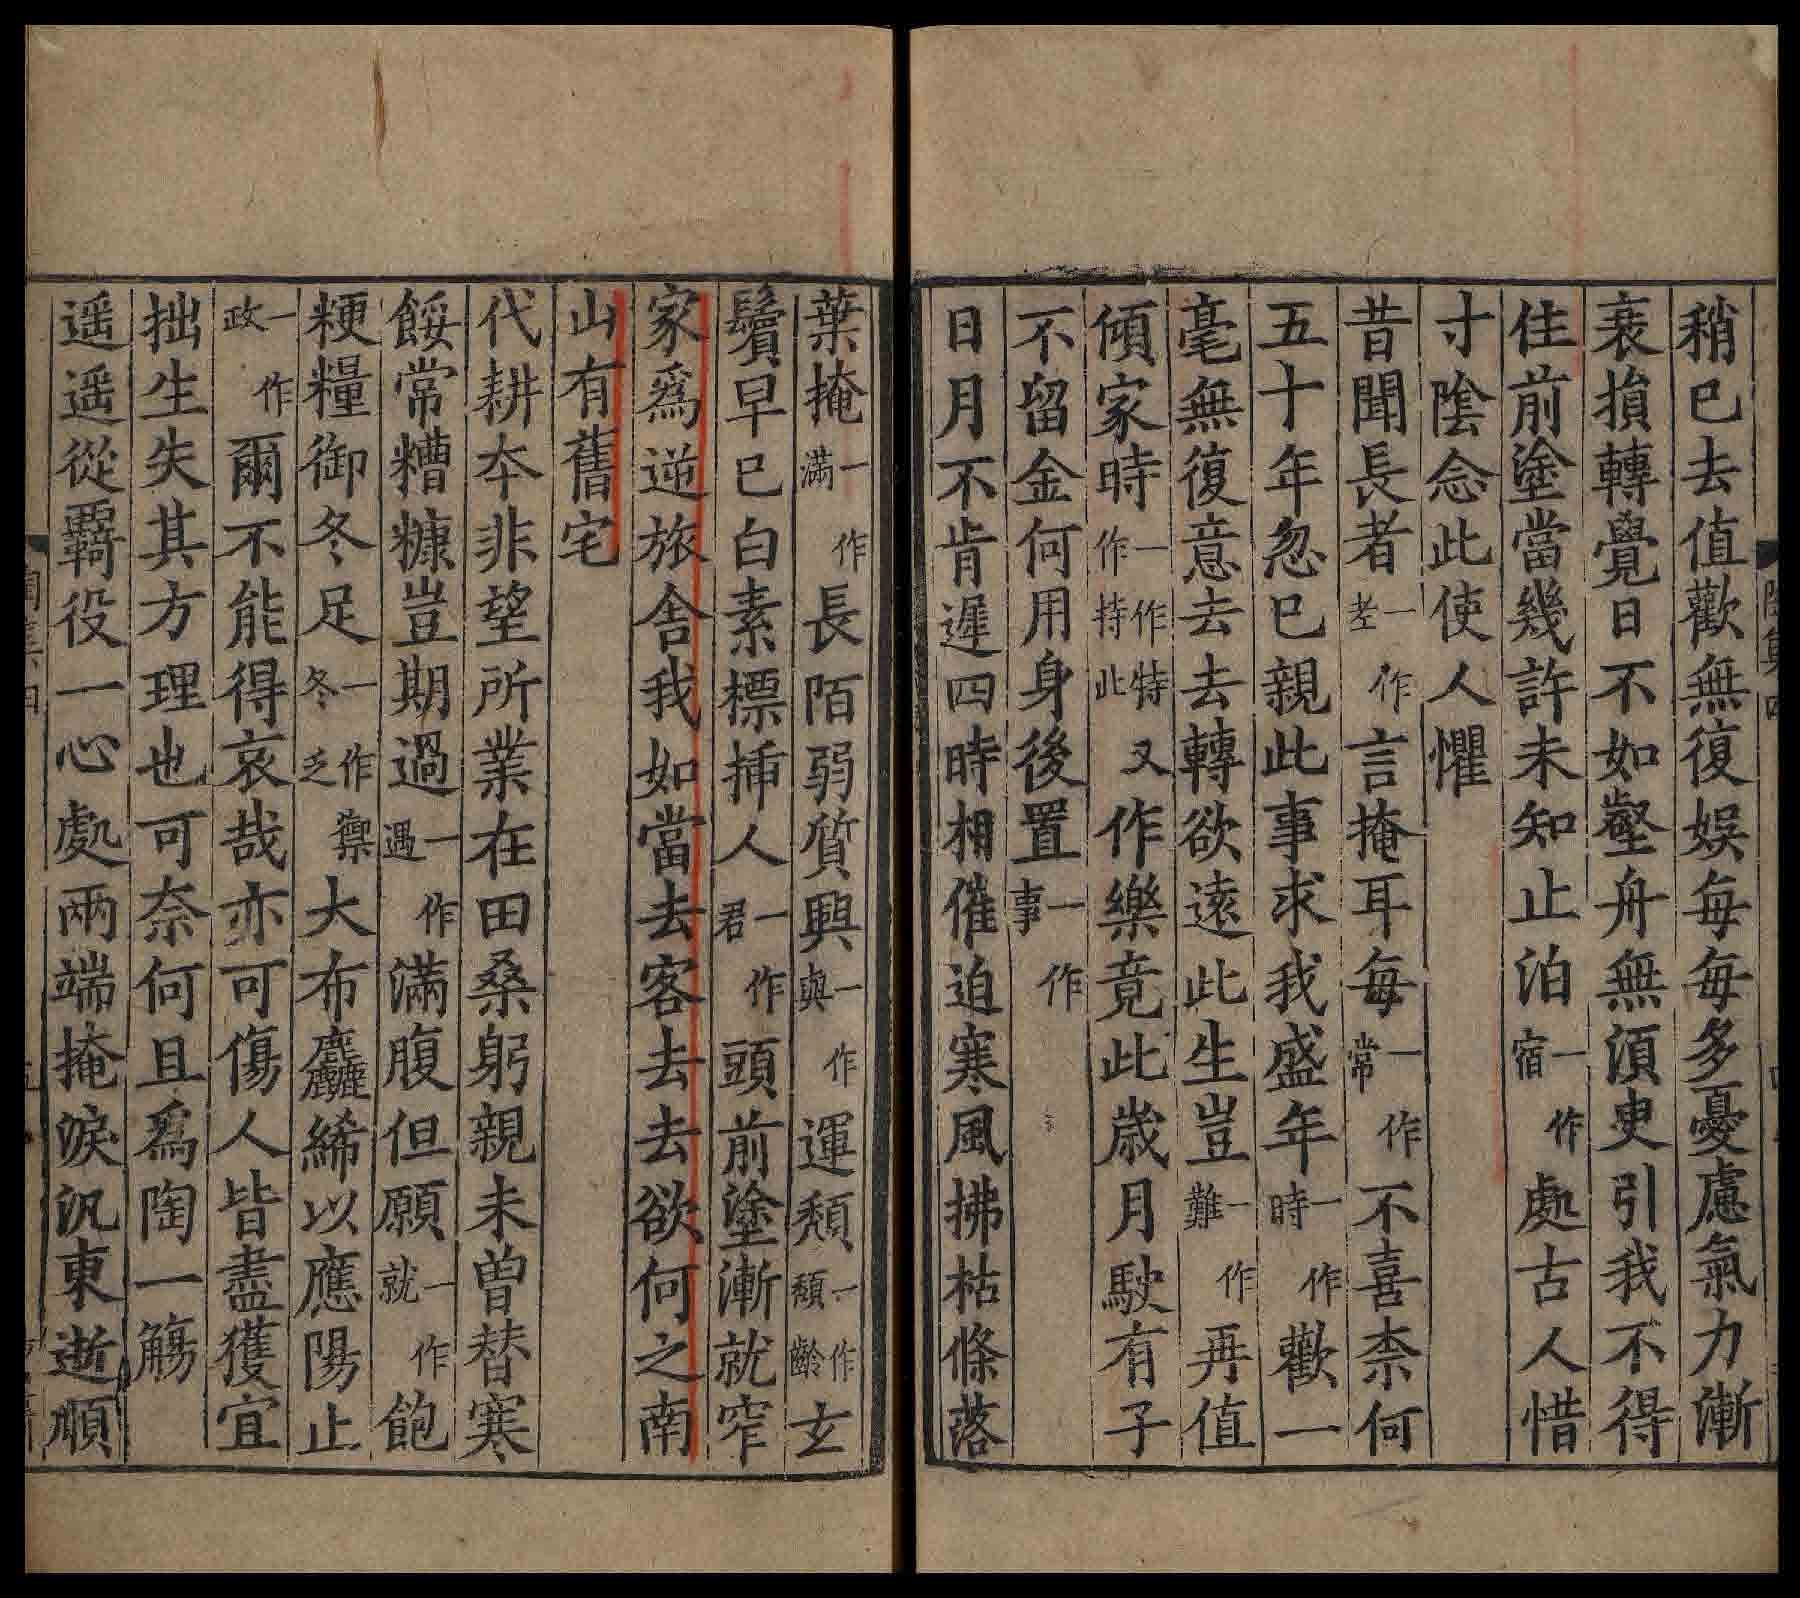 稍已去值歡無復娛每每多憂慮氣力漸
衰損轉覺日不如壑舟無須臾引我不得
住前塗當幾許未知止泊一作宿處古人惜
寸陰念此使人懼
昔聞長者一作老言掩耳每一作常不喜柰何
五十年忽已親此事求我盛年一作時歡一
毫無復意去去轉欲遠此生豈一作難再值
傾家時一作持作特此又作樂竟此歳月駛有子
不留金何用身後置一作事
日月不肯遲四時相催迫寒風拂枯條落
葉掩一作滿長陌弱質興一作與運頹一作頽齡玄
鬢早已白素標揷人一作君頭前塗漸就窄
家爲逆旅舍我如當去客去去欲何之南
山有舊宅
代耕夲非望所業在田桑躬親未曽替寒
餒常糟糠豈期過一作遇滿腹但願一作就飽
粳糧御冬足一作冬乏禦大布麤絺以應陽止
一作政爾不能得哀哉亦可傷人皆盡獲宜
拙生失其方理也可奈何且爲陶一觴
遥遥從覊役一心處兩端掩淚汎東逝順